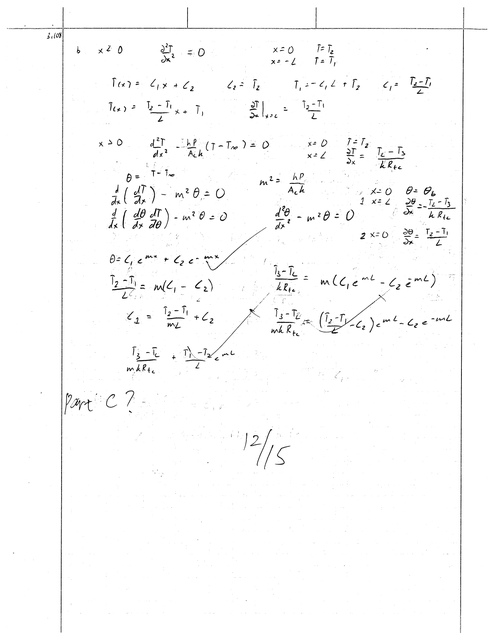 3.100
b x≤0 ∂²T/∂x² = 0 x=0 T=T₂
x=-L T=T₁
T(x) = C₁x + C₂ C₂ = T₂ T₁ = -C₁L + T₂ C₁ = (T₂-T₁)/L
T(x) = (T₂-T₁)/L x + T₁ ∂T/∂x|ₓ₌₀ = (T₂-T₁)/L
x>0 d²T/dx² - hP/(A_c k) (T-T∞) = 0 x=0 T=T₂
x=L ∂T/∂x = (T_L-T₃)/(kR_tc)
θ = T-T∞ m² = hP/(A_c k)
d/dx (dT/dx) - m²θ = 0 1 x=0 θ=θ_b
x=L ∂θ/∂x = -(T_L-T₃)/(kR_tc)
d/dx (dθ/dx dT/dθ) - m²θ = 0 d²θ/dx² - m²θ = 0 2 x=0 ∂θ/∂x = (T₂-T₁)/L
θ = C₁e^mx + C₂e^-mx
(T₂-T₁)/L = m(C₁ - C₂) (T₃-T_L)/(kR_tc) = m(C₁e^mL - C₂e^-mL)
C₁ = (T₂-T₁)/(mL) + C₂ (T₃-T_L)/(mkR_tc) = ((T₂-T₁)/L - C₂)e^mL - C₂e^-mL
(T₃-T_L)/(mkR_tc) + (T₁-T₂)/L e^mL
Part C?
12/15